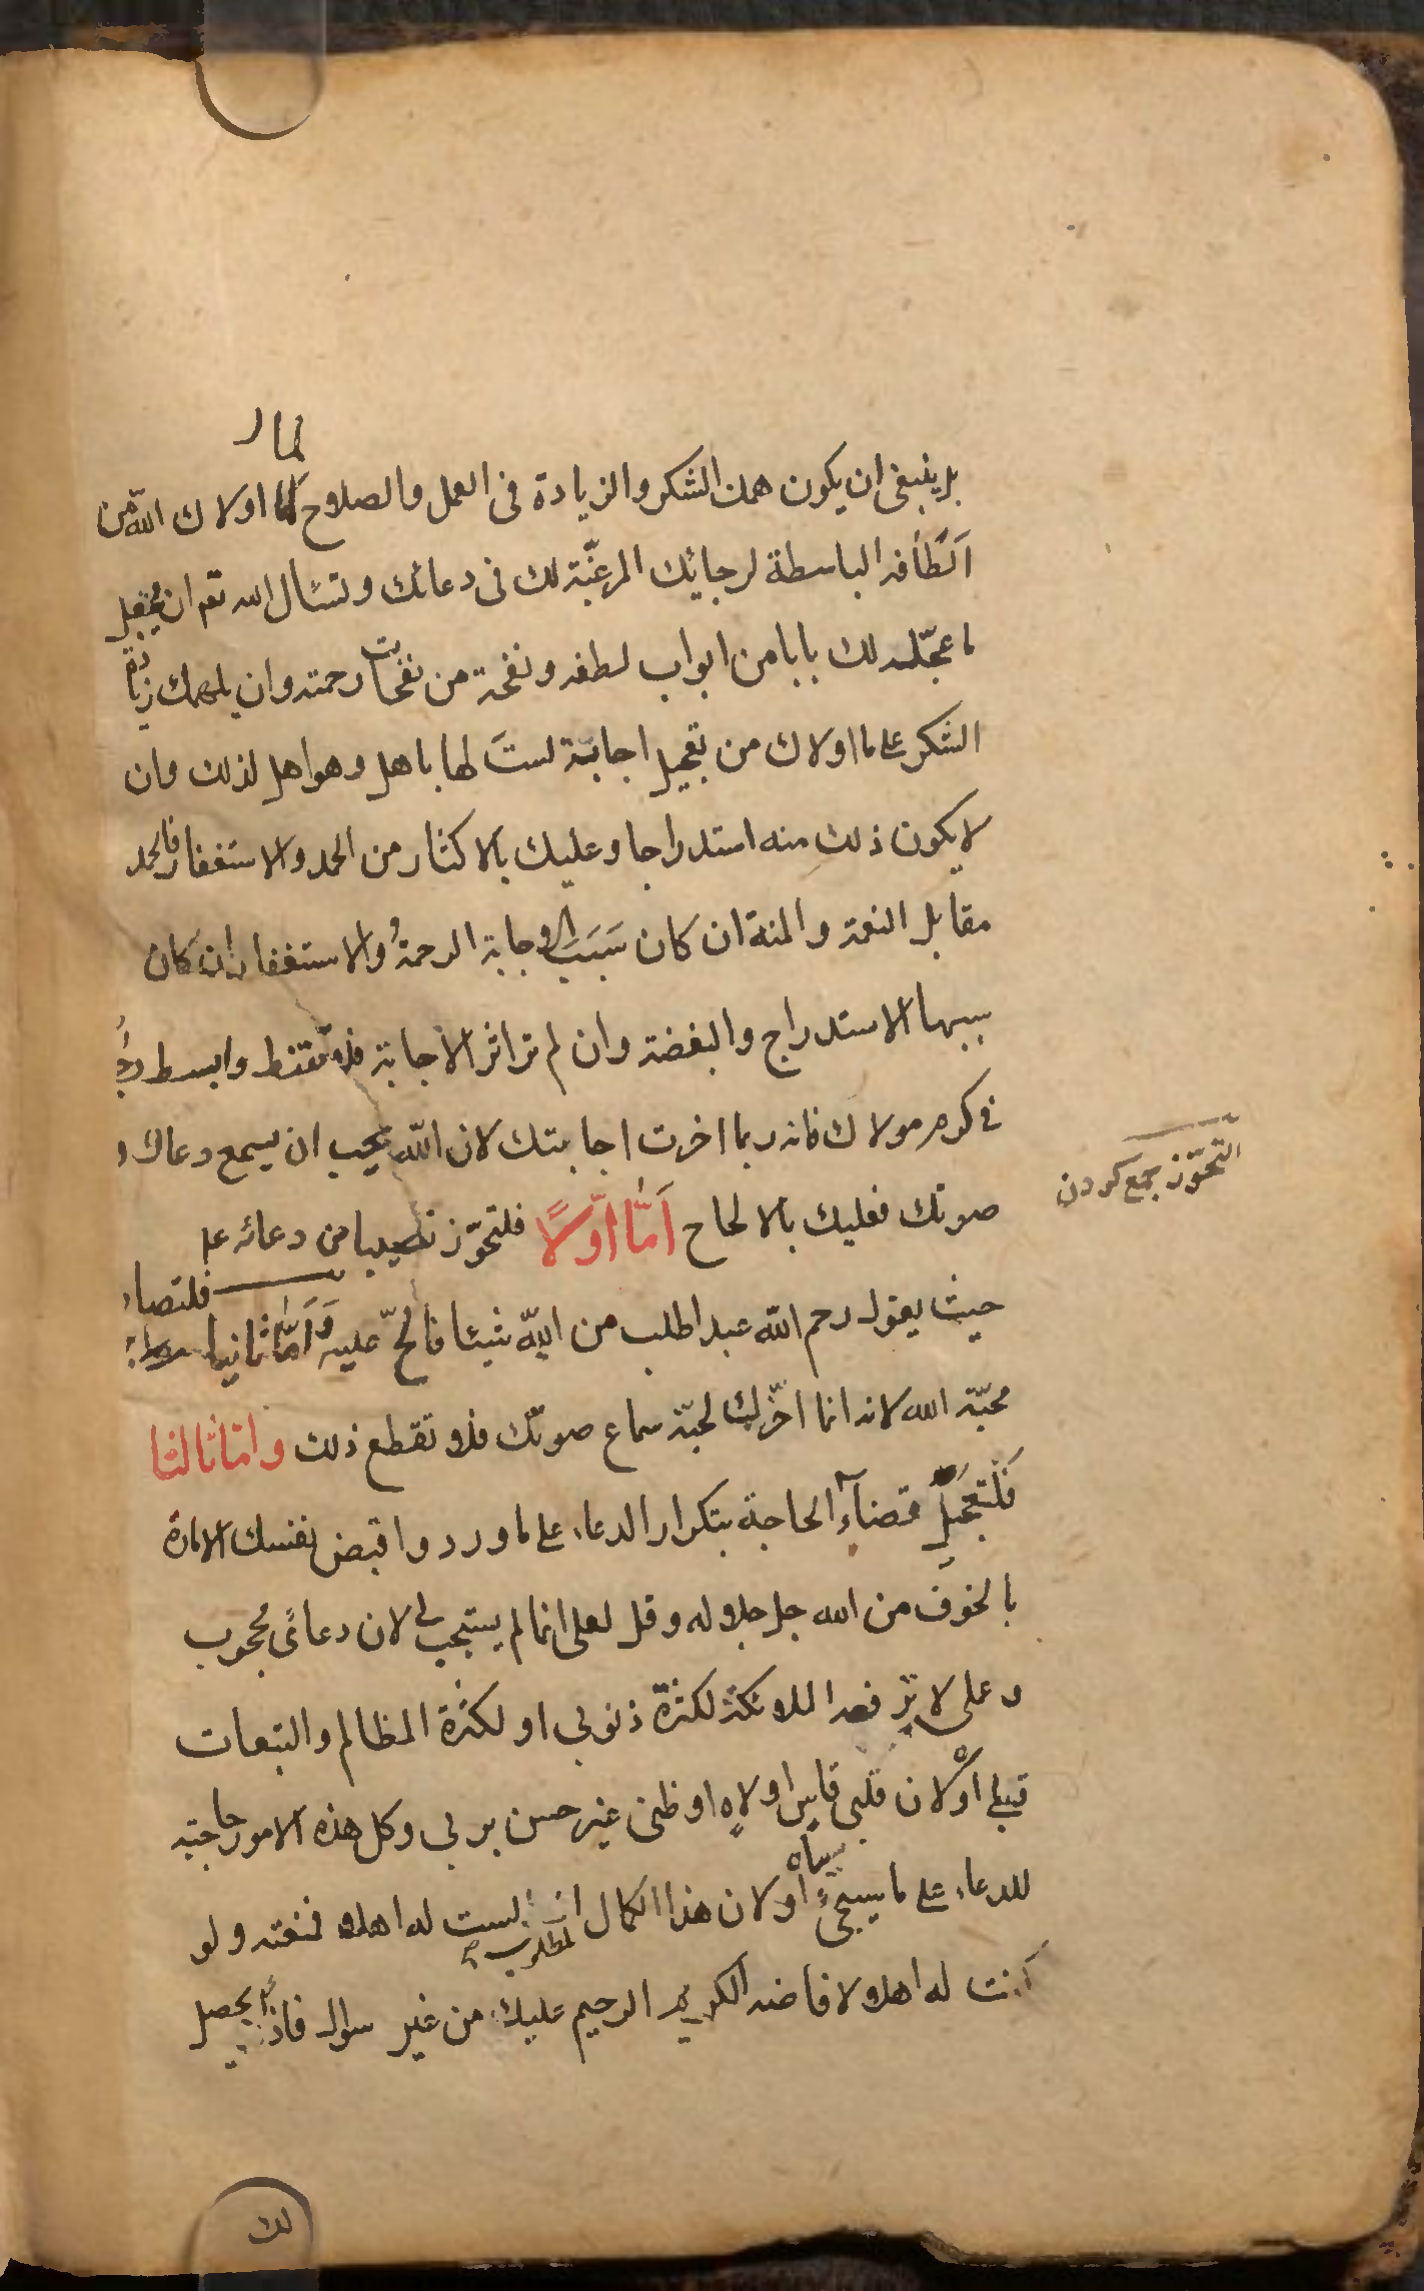 لما
بل ينبغى ان يكون همك الشكر والزيادة فى العمل والصلاح لما اولاك الله من
اَلْطَافه الباسطة لرجائك المرغّبة لك فى دعائك وتسئال الله تع ان يجعل
ما عجّله لك بابا من ابواب لطفه ونفحة من نفحات رحمته وان يلهمك زيادة
الشكر على ما اولاك من تعجيل اجابة لستَ لها باهل وهو اهل لذلك وان
لا يكون ذلك منه استدراجا وعليك بالاكثار من الحمد والاستغفار فالحمد
مقابل النعمة والمنة ان كان سَبَبَ الاجابة الرحمةُ والاستغفار ان كان
سببها الاستدراج والبغضة وان لم تر اثر الاجابة فلا تقنط وابسط رجا
فى كرم مولاك فانه ربما اخرت اجابتك لان الله يحب ان يسمع دعاك و
التحوّز جمع كردن
صوتك فعليك بالالحاح اَمَّا اوّلًا فلتحوّز نصيبا من دعائه ع
حيث يقول رحم الله عبدا طلب من الله شيئا فالحّ عليه وَاَمَّا ثانيا فلتصا
محبّة الله لانه انما اخّرك لمحبّة سماع صوتك فلا تقطع ذلك وامّا ثالثا
فَلتعجّل قضاء الحاجة بتكرار الدعاء على ما ورد واقبض نفسك الامارة
بالخوف من الله جل جلاله وقل لعلى انما لم يستجب لى لان دعائى محجوب
وعملى لا ترفعه الملائكة لكثرة ذنوبى او لكثرة المظالم والتبعات
قبلى اَوْ لان قلبى قاس او لاه او ظنى غير حسن بربى وكل هذه الامور حاجبة
للدعاء على ما سيجئ او لان هذا الكمال المطلوب لست له اهلا فمنعته ولو
كنت له اهلا لافاضه الكريم الرحيم عليك من غير سوال فاذا يحصل
لك